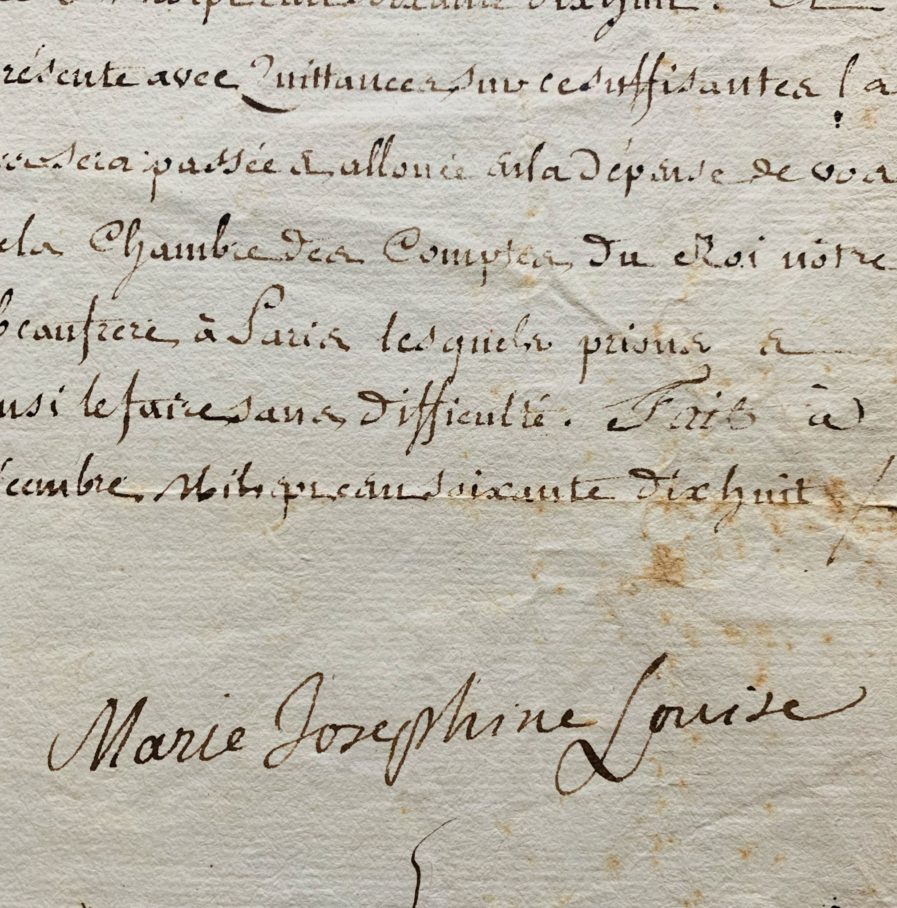 soixante dixhuit. Et
résente avec Quittances sur ce suffisantes la
sera passée et allouée en la dépense de vos
la Chambre des Comptes du Roi nôtre
beaufrere à Paris lesquels prions et
nsi le faire sans difficulté. Fait à
cembre Mil sept cent soixante dixhuit
Marie Josephine Louise